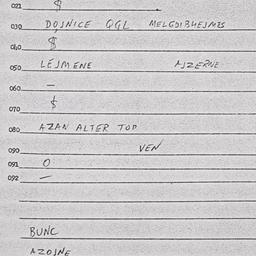 021 $
030 DOJNICE QGL
040 $
050 LEJMENE AJZERNE
060 —
070 $
080 AZAN ALTER TOP
090 VEN
091 O
092 —
BUNC
AZOJNE